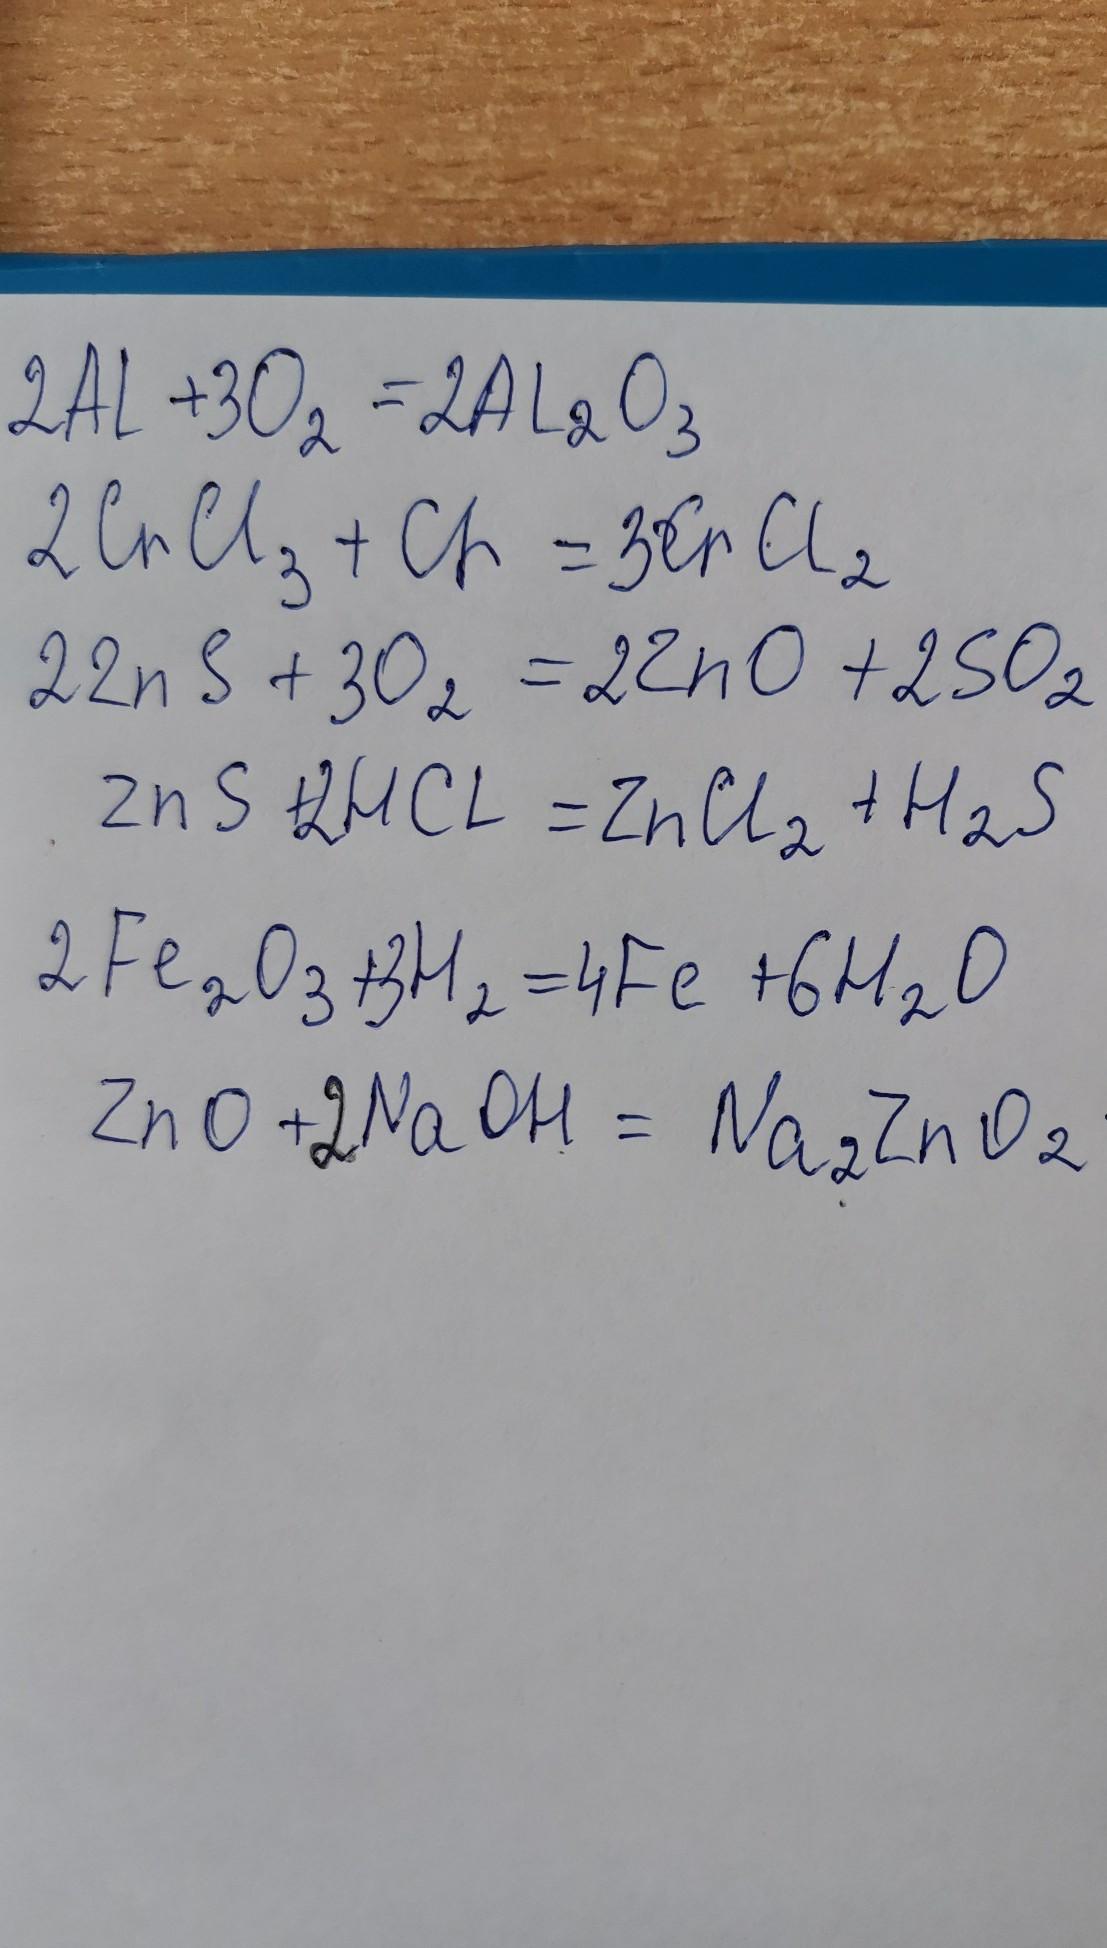 2Al +3O₂ =2Al₂O₃
2CrCl₃ + Cr =3CrCl₂
2ZnS +3O₂ =2ZnO +2SO₂
ZnS +2HCL =ZnCl₂ +H₂S
2Fe₂O₃+3H₂=4Fe +6H₂O
ZnO +2NaOH = Na₂ZnO₂